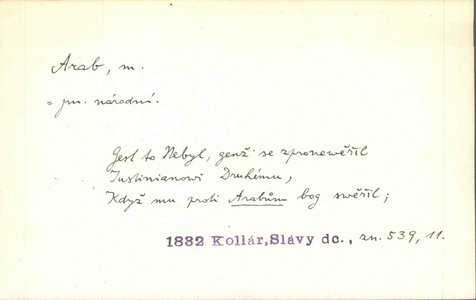 Arab, m.
= jm. národní.
Gest to Nebyl, genž se zpronewěřil
Iustinianowi Druhému,
Když mu proti Arabům bog swěřil;
1832 Kollár,Slávy dc., zn. 539, 11.